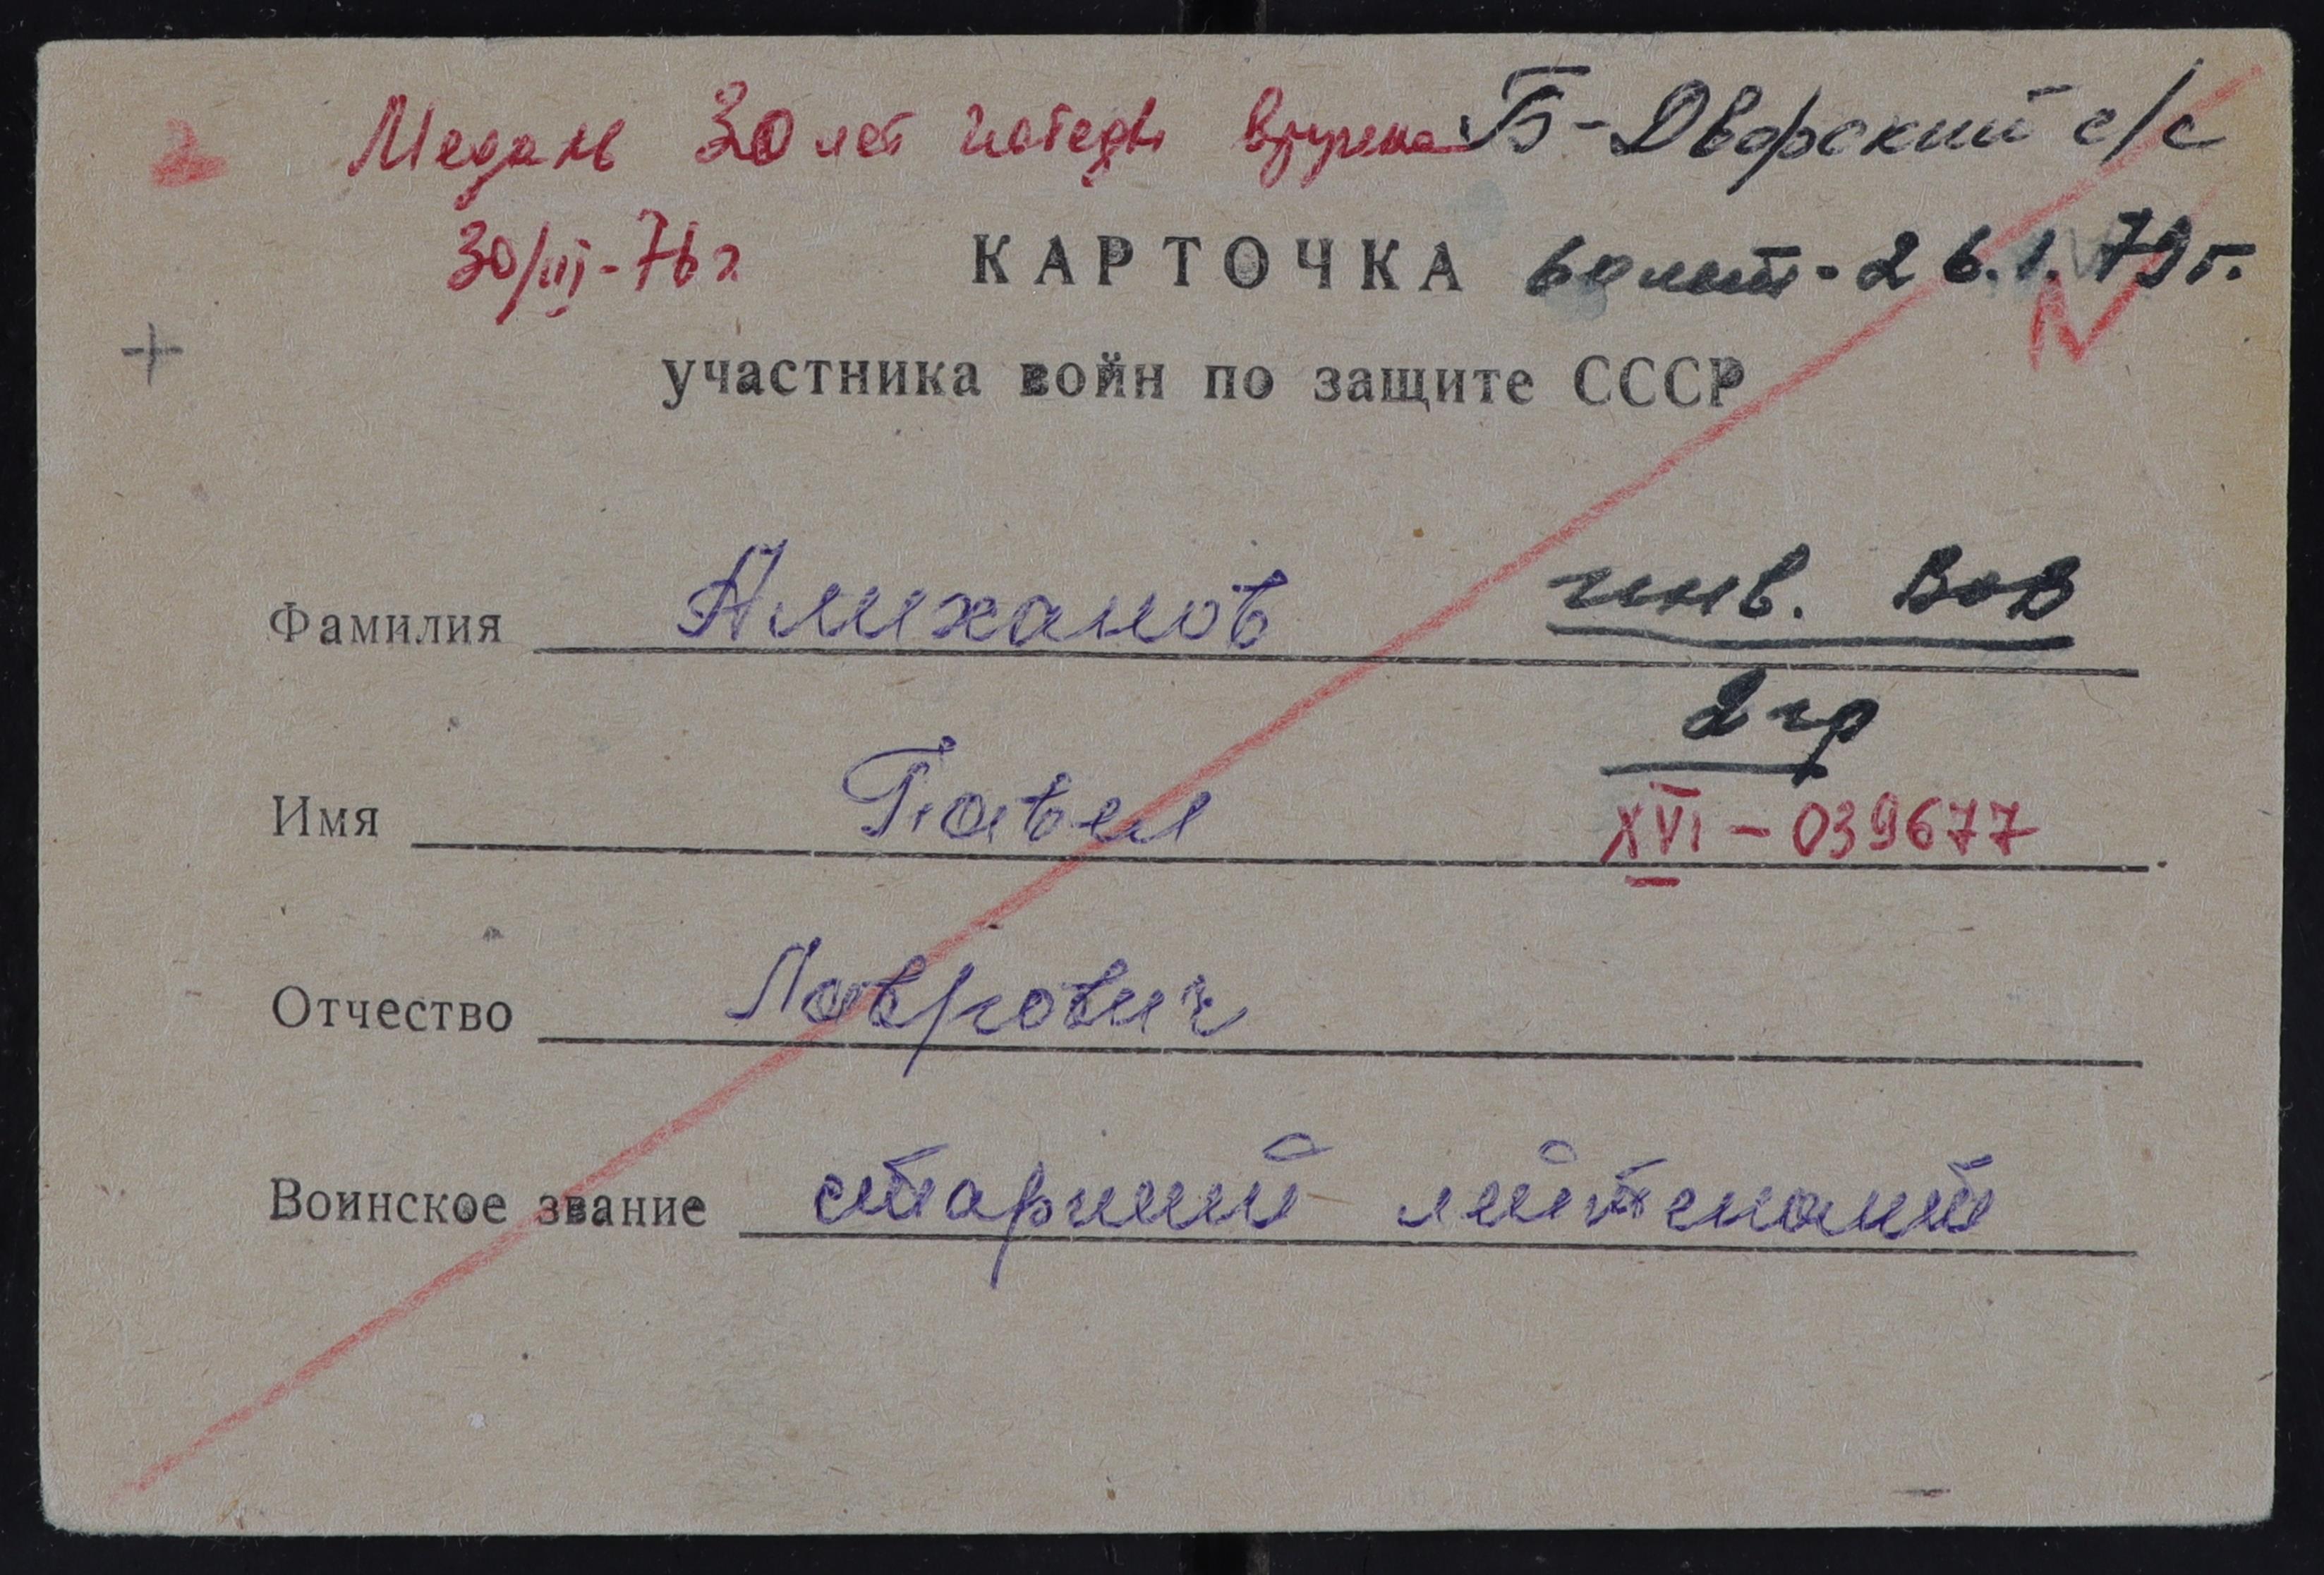 Медаль 30 лет победы вручена Б-Дворский с/с
30/III-76г
КАРТОЧКА 60 лет - 26.1.79г.
+
участника войн по защите СССР
Фамилия Алиханов инв. ВОВ
2 гр
Имя Павел XVI - 039677
Отчество Лаврович
Воинское звание старший лейтенант